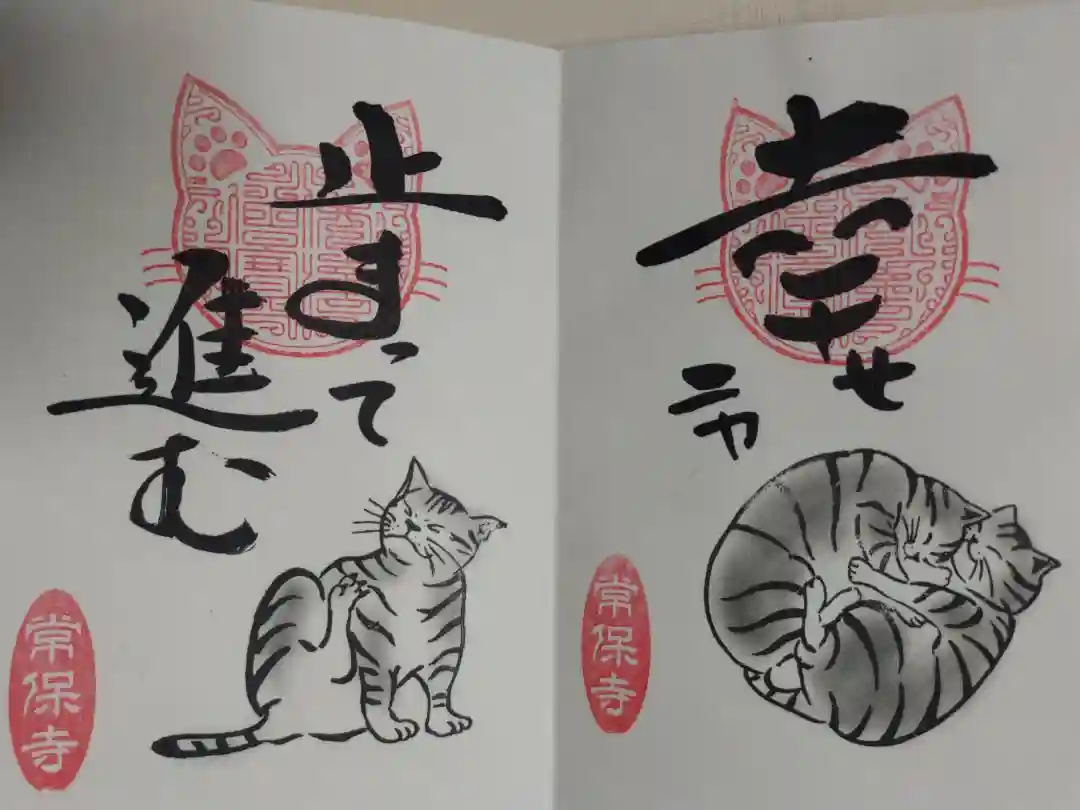 幸せ
ニャ
常保寺
止まって
進む
常保寺